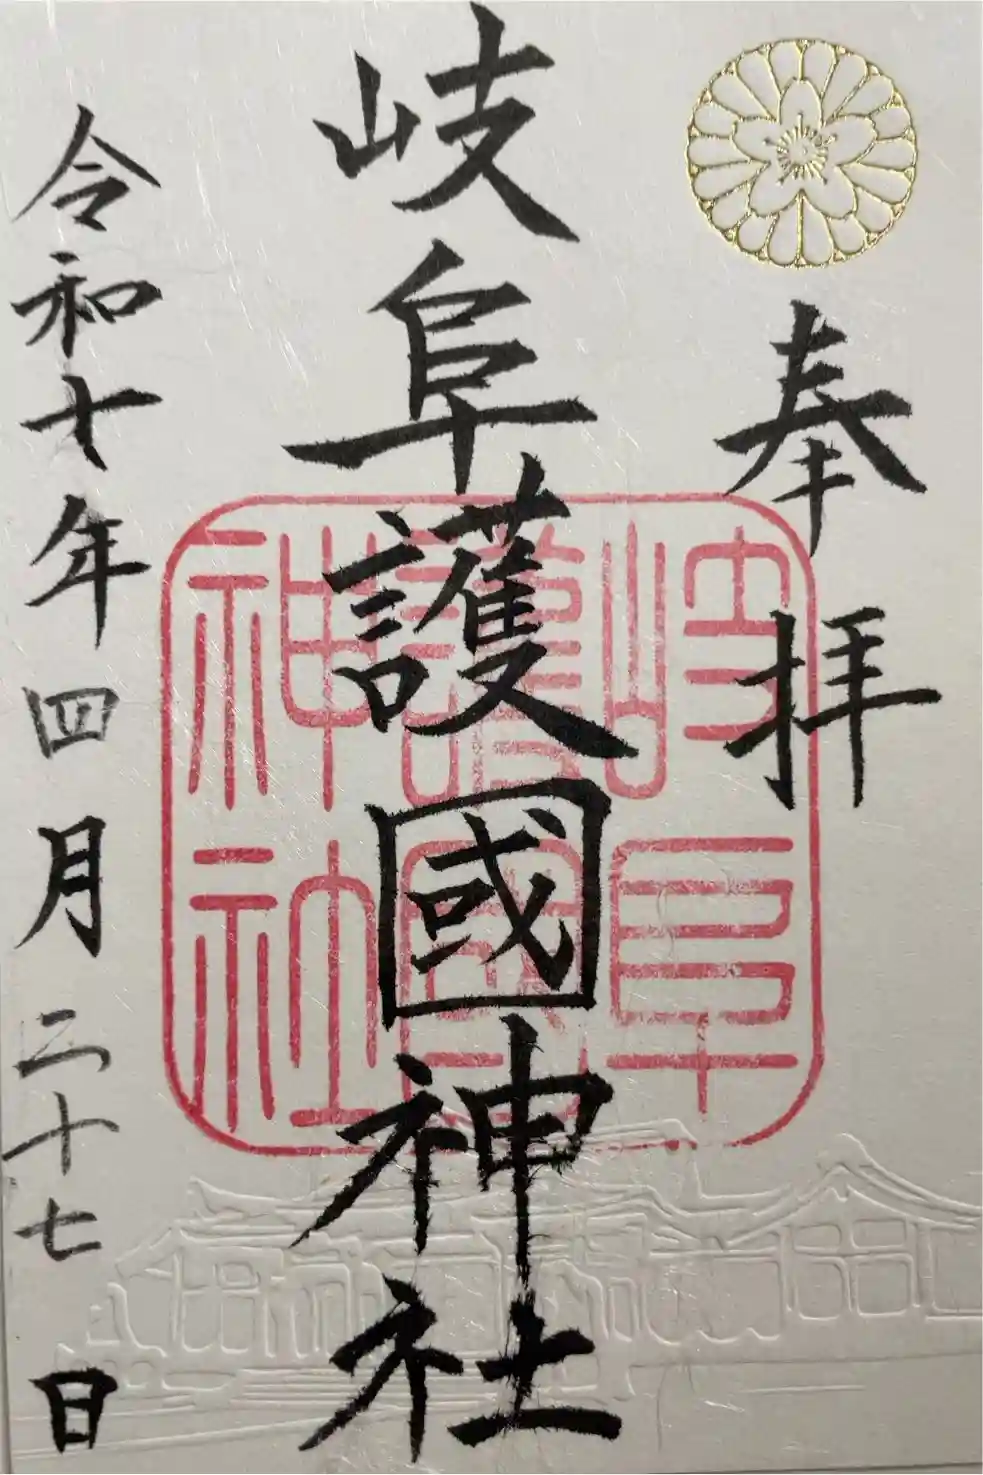 奉拝
岐阜護國神社
岐阜
護國
神社
令和七年四月二十七日